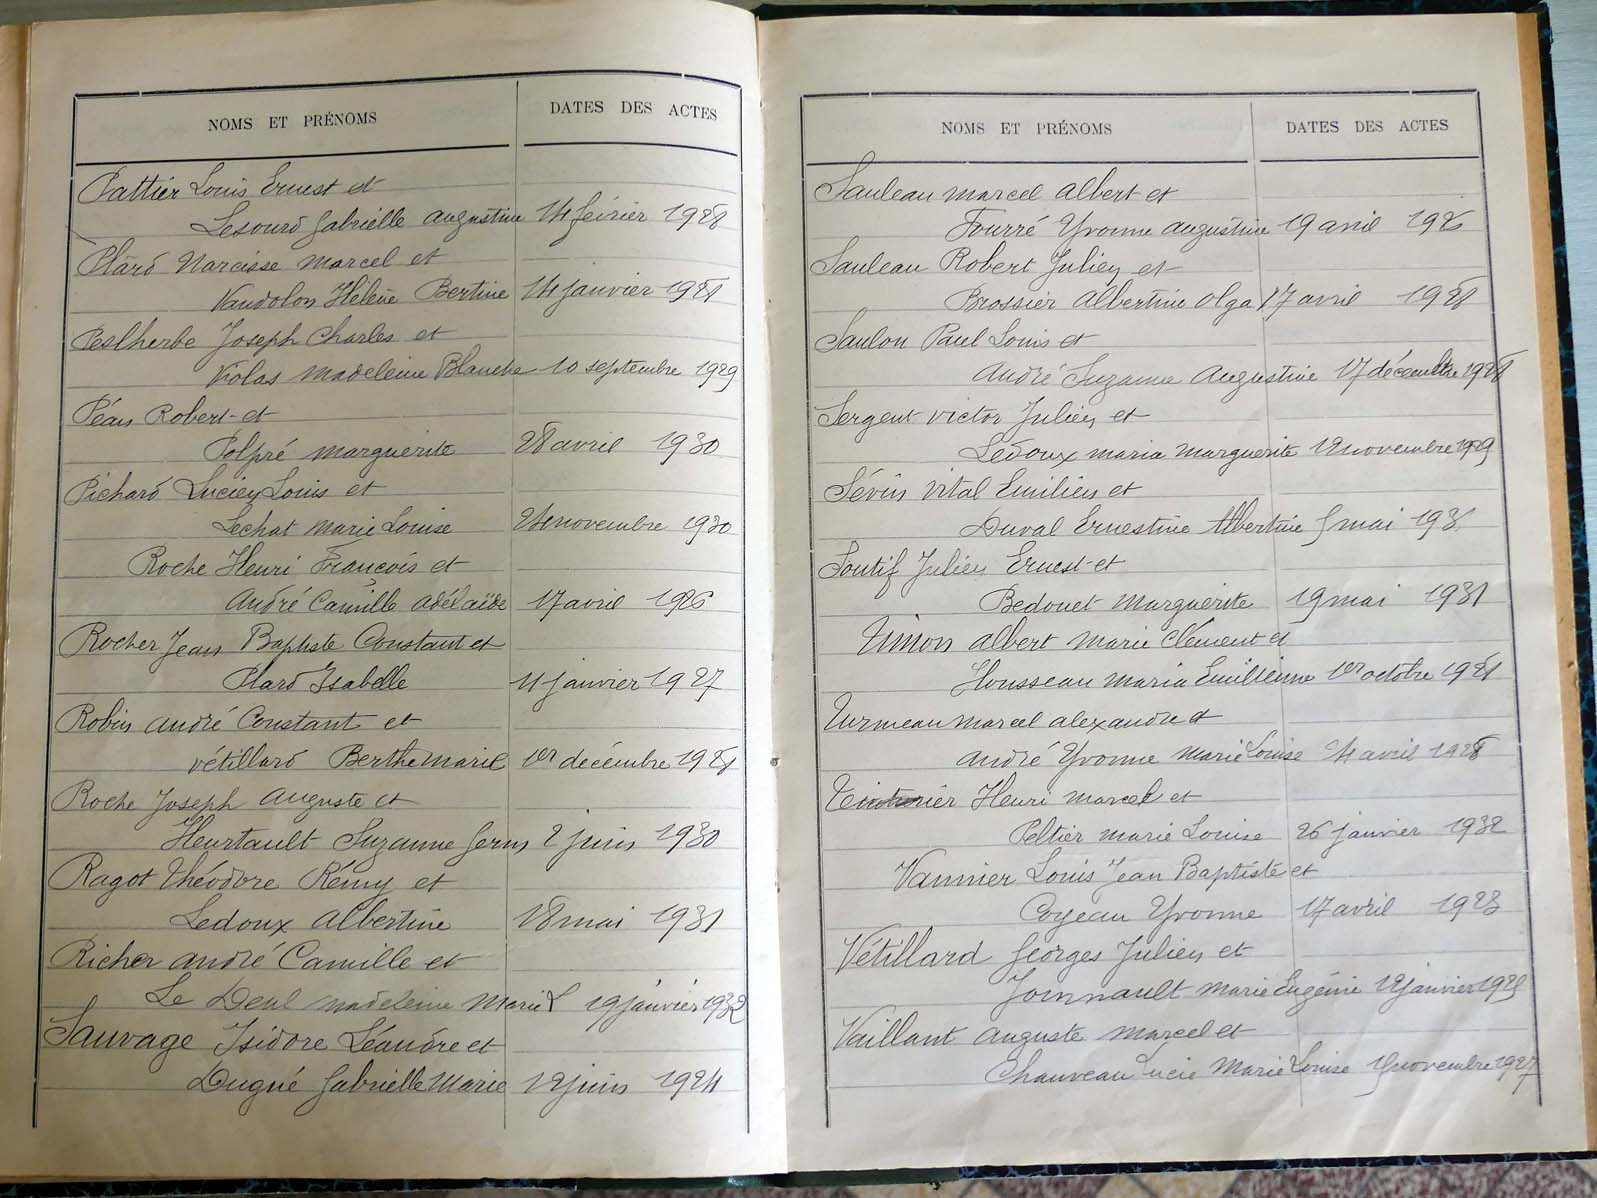 NOMS ET PRÉNOMS DATES DES ACTES
Pattier Louis Ernest et
Lesourd Gabrielle Augustine 14 février 1928
Plard Narcisse Marcel et
Vaudolon Hélène Bertine 14 janvier 1928
Peslherbe Joseph Charles et
Violas Madeleine Blanche 10 septembre 1929
Péan Robert et
Polpré Marguerite 28 avril 1930
Pichard Lucien Louis et
Lechat Marie Louise 24 novembre 1930
Roche Henri François et
André Camille Adélaïde 17 avril 1926
Rocher Jean Baptiste Constant et
Plard Isabelle 11 janvier 1927
Robin André Constant et
Vétillard Berthe Marie 1er décembre 1928
Roche Joseph Auguste et
Heurtault Suzanne Germ 2 juin 1930
Ragot Théodore Rémy et
Ledoux Albertine 18 mai 1931
Richer André Camille et
Le Deul Madeleine Marie L 19 janvier 1932
Sauvage Isidore Léandre et
Dugué Gabrielle Marie 12 juin 1924
NOMS ET PRÉNOMS DATES DES ACTES
Sauleau Marcel Albert et
Fourré Yvonne Augustine 19 avril 1926
Sauleau Robert Julien et
Brossier Albertine Olga 17 avril 1928
Saulou Paul Louis et
André Suzanne Augustine 17 décembre 1928
Sergent Victor Julien et
Ledoux Maria Marguerite 12 novembre 1929
Sévin Vital Emilien et
Duval Ernestine Albertine 5 mai 1931
Soutif Julien Ernest et
Bedouet Marguerite 19 mai 1931
Albert Marie Clément et
Housseau Maria Emilienne 1er octobre 1921
Turmeau Marcel Alexandre et
André Yvonne Marie Louise 14 avril 1928
Henri Marcel et
Peltier Marie Louise 26 janvier 1932
Vannier Louis Jean Baptiste et
Coyeau Yvonne 17 avril 1923
Vétillard Georges Julien et
Marie Eugénie 12 janvier 1925
Vaillant Auguste Marcel et
Chauveau Lucie Marie Louise novembre 1927